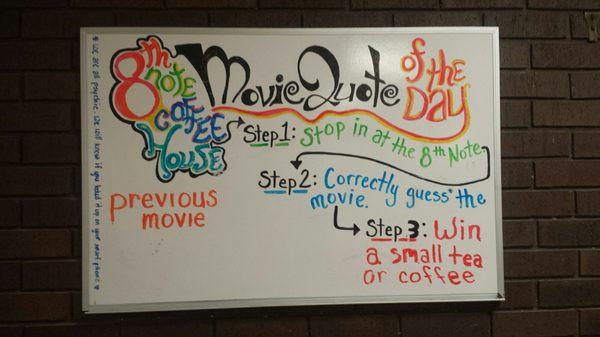 8th
note
COFFEE
HOUSE
Movie Quote
of
the
DAY
Step 1: Stop in at the 8th Note
Step 2: Correctly guess* the
movie.
Step 3: Win
a small tea
or coffee
previous
movie
* we are all psychic. We will know if you looked it up on your smart phone *